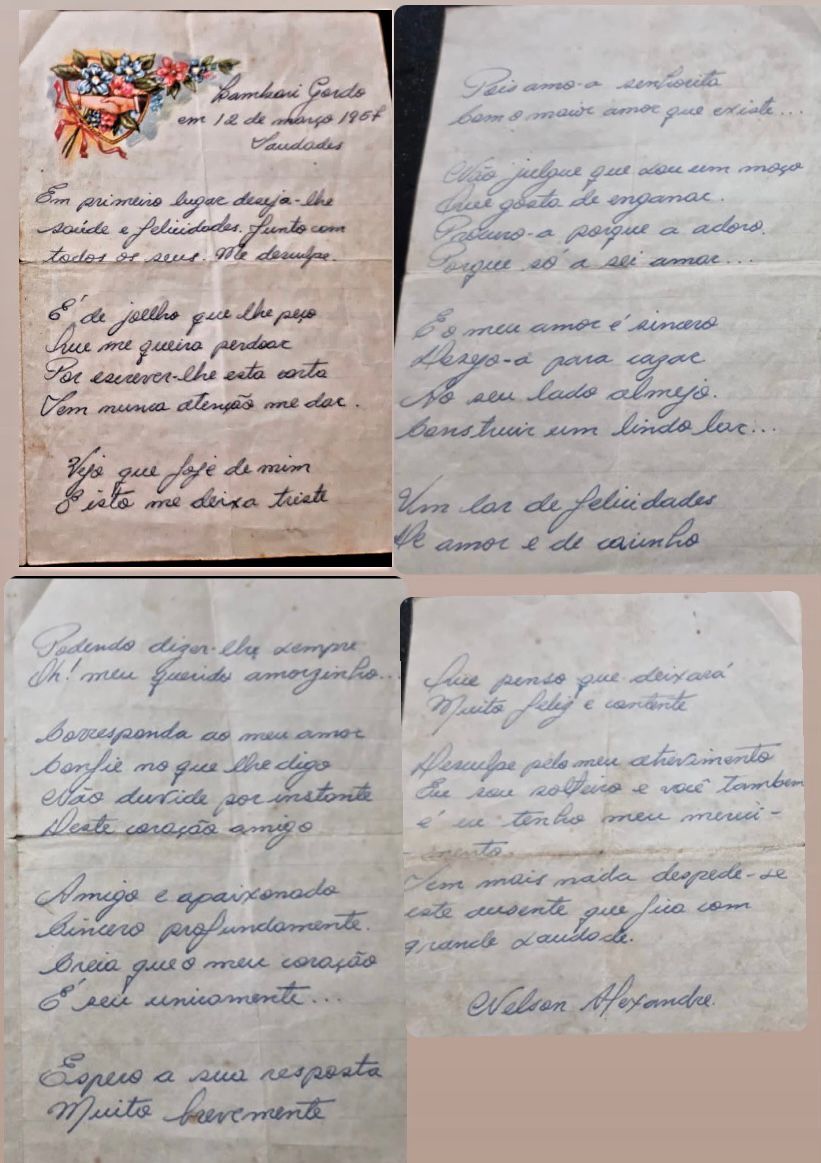 Lambari Gordo
em 12 de março 1957
Saudades
Em primeiro lugar deseja-lhe
saúde e felicidades. Junto com
todos os seus. Me desculpe.
É de joelho que lhe peço
Que me queira perdoar
Por escrever-lhe esta carta
Sem nunca atenção me dar.
Vejo que foje de mim
E isto me deixa triste
Pois amo-a senhorita
Com o maior amor que existe...
Não julgue que sou um moço
Que gosta de enganar.
Procuro-a porque a adoro.
Porque só a sei amar...
E o meu amor é sincero
Desejo-a para cazar
Ao seu lado almejo.
Construir um lindo lar...
Um lar de felicidades
De amor e de carinho
Podendo dizer-lhe sempre
Oh! meu querido amorzinho...
Corresponda ao meu amor
Confie no que lhe digo
Não duvide por instante
Deste coração amigo
Amigo e apaixonado
Sincero profundamente.
Creia que o meu coração
É seu unicamente...
Espero a sua resposta
Muito brevemente
Que penso que deixará
Muito feliz e contente
Desculpe pelo meu atrevimento
Eu sou solteiro e você tambem
é eu tenho meu mereci-
mento.
Sem mais nada despede-se
este ausente que fica com
grande saudade.
Nelson Alexandre.